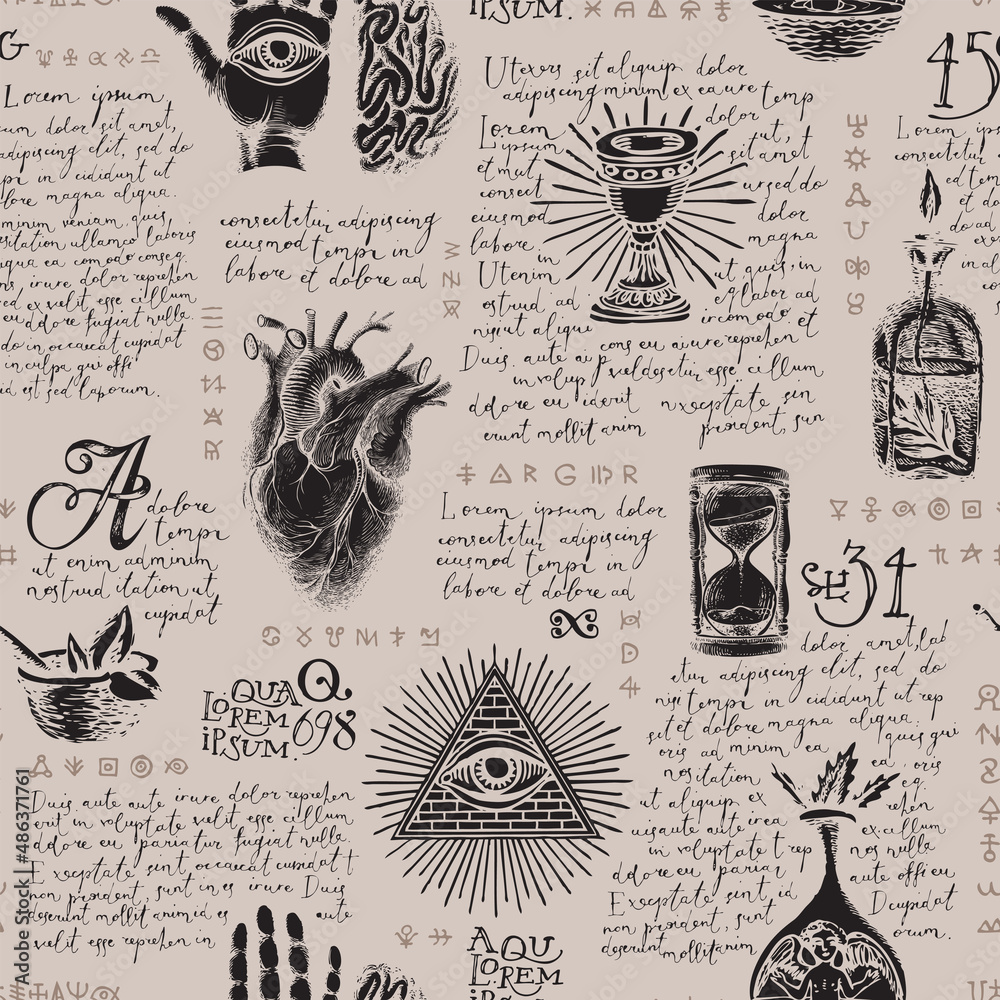 IPSUM.
G
459
Lorem ipsum
cum dolor sit amet,
adipiscing elit, sed do
in cididunt ut
lore magna aliqua.
minim veniam, quis,
sitation ullamco laboris
ea comodo conseq.
irure dolor reprehen
ex velit esse cillum
eu dolore fugiat nulla.
do in occaecat cupidat
in culpa qui offi
id est sed laborum.
consectetur adipiscing
eiusmod tempi in
labore et dolore ad
Utexers sit aliquip dolor
adipiscing minim ex ea ure temp
Lorem
ipsum
et mut
consect
eiusmod
labore
in
Utenim
ostrud ad
nisi ut aliqui
dolor
ut, t
sit amet
ur sed do
dolor
magna
ut quis, in
eg labor ad
ircomodo et
cons eu aiure reprehen t
Duis aute ai p veldesetur esse cillum
in volup
dolore eu iderit nxceptate sin
erunt mollit anim proident, sun
Lorem ips
consectetur
ed tem
A
dolore
tempi
ut enim ad minim
nostrud itation ut
cupidat
Lorem ipsum dolor
consectetur adipiscing
eiusmod tempi in
labore et dolore ad
31
dolor amet, lab
etur adipiscing elit, sed do
nisi tempi in cididunt ut rep
sit et dolore magna aliqua.
quis qui
oris ad minim ea
ea, oris
nositation
eq.
ut aliquip ex
rehen
uisaute aute irea
ex cillum
in voluptate t rep
nos nulla
dolore eu pariar
aute offi eu
Excptate sint id
D cupidat
non proident, sunt
orum.
deserunt mollit anim
QUA Q
LOREM 698
IPSUM.
Duis aute aute irure dolor reprehen
erit in voluptate velit esse cillum
dolore eu pariatur fugiat nulla
Exceptate sint occaecat cupidat t
non proident, sunt in es irure Duis
deserunt mollit anim id es aute
velit esse reprehen in
A QU
LOREM
IPS
Adobe Stock | #486371761